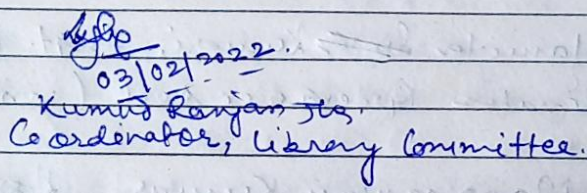 03/02/2022.
Kumud Ranjan Jha.
Coordinator, Library Committee.